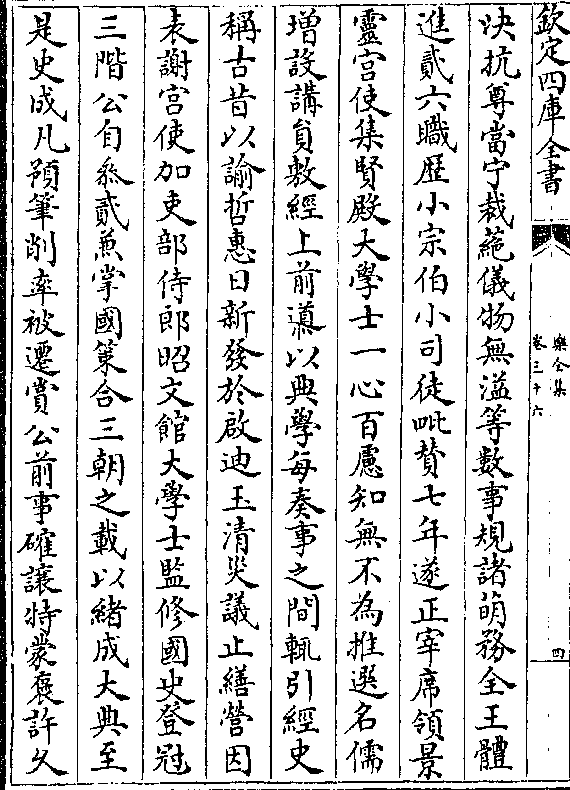 欽定四庫全書
樂全集
卷三十六
四
決抗尊當宁裁蕝儀物無溢等數事規諸萌務全王體
進貳六職歴小宗伯小司徒毗賛七年遂正宰席領景
靈宫使集賢殿大學士一心百慮知無不為推選名儒
增設講員敷經上前導以典學每奏事之間輒引經史
稱古昔以諭哲惠日新發於啟迪玉清災議止繕營因
表謝宫使加吏部侍郎昭文館大學士監修國史登冠
三階公自叅貳兼掌國策合三朝之載以緒成大典至
是史成凡預筆削率被遷賞公前事確讓特蒙褒許乆